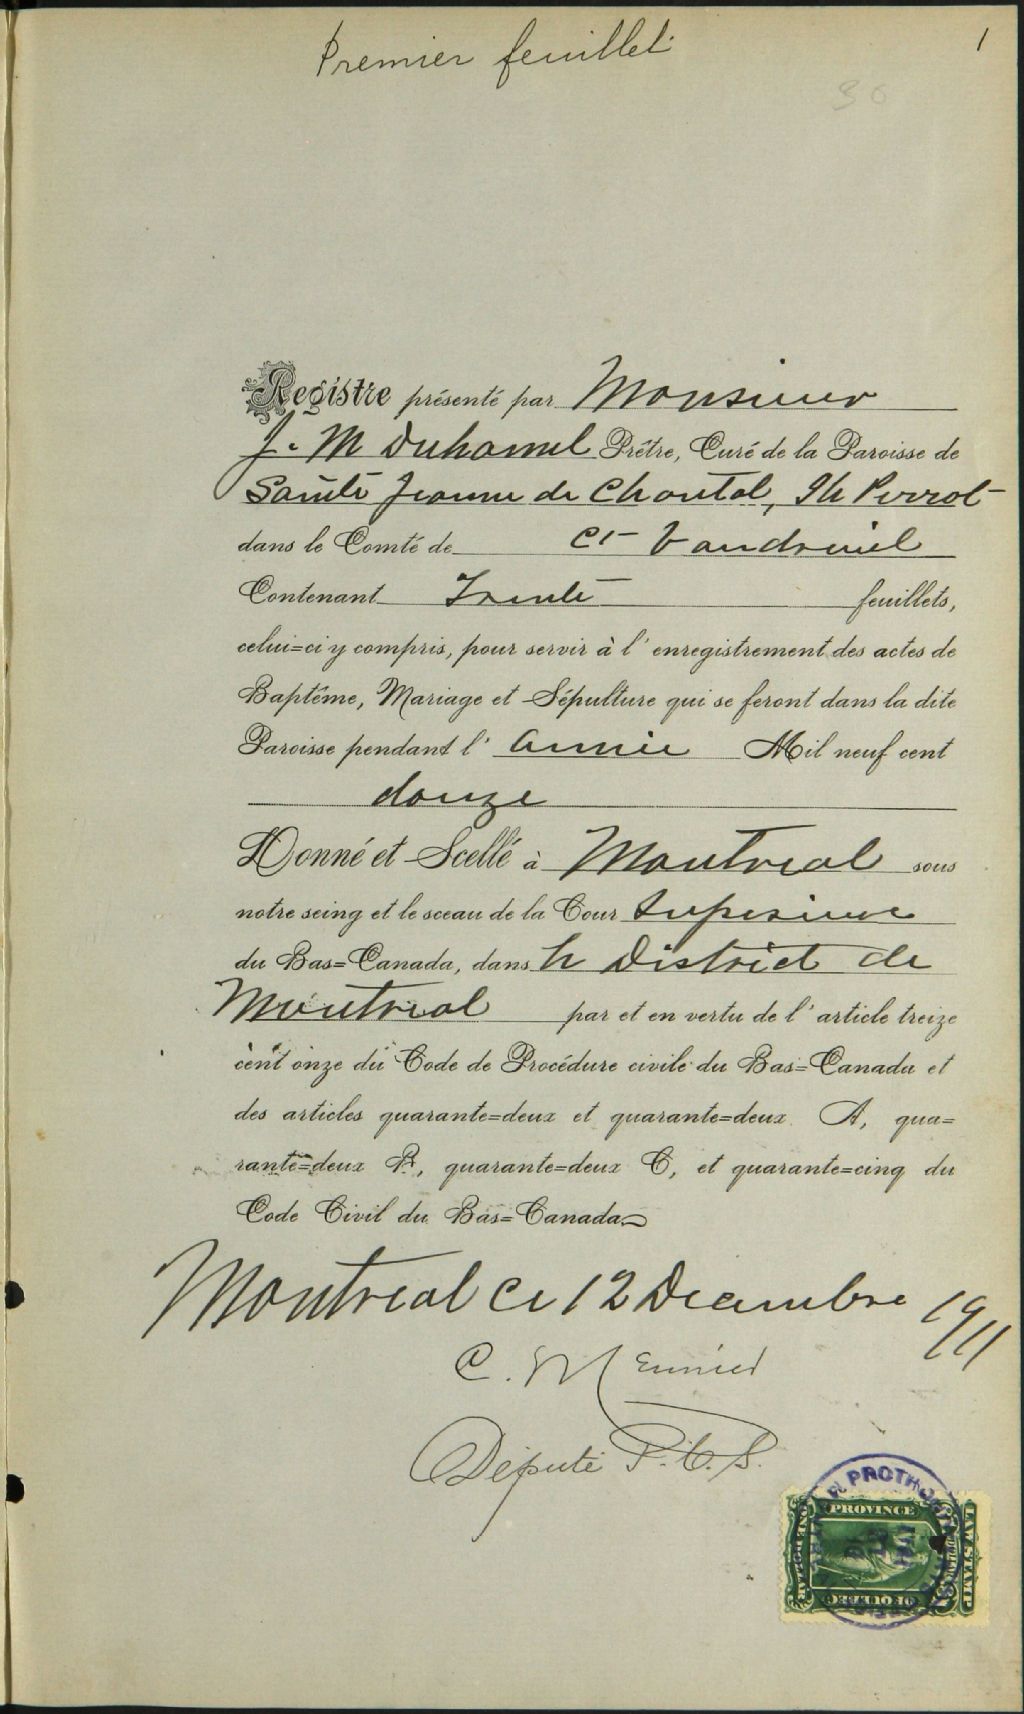 Premier feuillet
1
30
Registre présenté par Monsieur
J. M Duhamel Prêtre, Curé de la Paroisse de
Sainte Jeanne de Chantal, Ile Perrot
dans le Comté de Ct Vaudreuil
Contenant Trente feuillets,
celui=ci y compris, pour servir à l'enregistrement des actes de
Baptême, Mariage et Sépulture qui se feront dans la dite
Paroisse pendant l'année Mil neuf cent
douze
Donné et Scellé à Montreal sous
notre seing et le sceau de la Cour Superieure
du Bas=Canada, dans le District de
Montreal par et en vertu de l'article treize
cent onze du Code de Procédure civile du Bas=Canada et
des articles quarante=deux et quarante=deux A, qua=
rante=deux B, quarante=deux C, et quarante=cinq du
Code Civil du Bas=Canada
Montreal ce 12 Decembre 1911
C. Meunier
Député P.C.S.
PROVINCE
OF QUEBEC
LAW STAMP
ONE DOLLAR